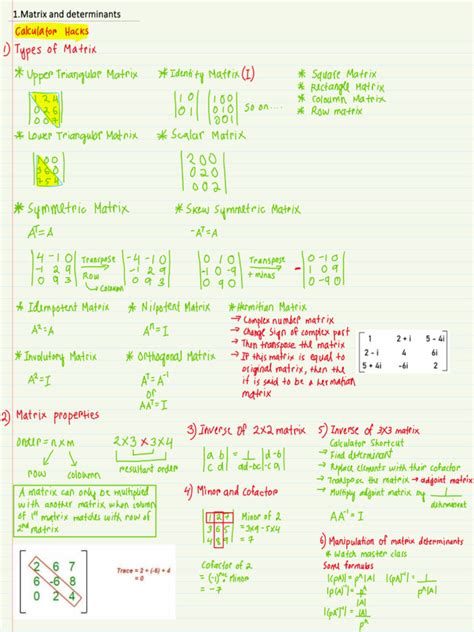 1.Matrix and determinants
Calculator Hacks
1) Types of Matrix
* Upper Triangular Matrix
1 2 4
0 2 6
0 0 7
* Identity Matrix (I)
1 0
0 1
1 0 0
0 1 0
0 0 1
so on....
* Square Matrix
* Rectangle Matrix
* Coloumn Matrix
* Row matrix
* Lower Triangular Matrix
1 0 0
3 6 0
7 5 4
* Scalar Matrix
2 0 0
0 2 0
0 0 2
* Symmetric Matrix
Aᵀ = A
4 -1 0
-1 2 9
0 9 3
Transpose
Row
↳ Coloumn
-4 -1 0
-1 2 9
0 9 3
* Skew Symmetric Matrix
-Aᵀ = A
0 1 0
-1 0 -9
0 9 0
Transpose
+ minus
0 -1 0
1 0 9
0 -9 0
* Idempotent Matrix
A² = A
* Nilpotent Matrix
Aⁿ = I
* Hermitian Matrix
→ Complex number matrix
→ Change sign of complex part
→ Then transpose the matrix
→ If this matrix is equal to
original matrix, then the
it is said to be a hermation
matrix
1 2 + i 5 - 4i
2 - i 4 6i
5 + 4i -6i 2
* Involutory Matrix
A² = I
* Orthogonal Matrix
Aᵀ = A⁻¹
or
AAᵀ = I
2) Matrix properties
order = n x m
row coloumn
2x3 x 3x4
resultant order
A matrix can only be multiplied
with another matrix when coloumn
of 1ˢᵗ matrix matches with row of
2ⁿᵈ matrix
2 6 7
6 -6 8
0 2 4
Trace = 2 + (-6) + 4
= 0
3) Inverse of 2x2 matrix
a b
c d
= 1
ad-bc
d -b
-c a
4) Minor and Cofactor
1 2 7
3 6 5
4 8 9
Minor of 2
= 3x9-5x4
= 7
Cofactor of 2
= (-1) Minor
= -7
5) Inverse of 3x3 matrix
Calculator Shortcut
→ Find determinant
→ Replace elements with their cofactor
→ Transpose the matrix → adjoint matrix
→ Multiply adjoint matrix by 1
determinant
AA⁻¹ = I
6) Manipulation of matrix determinants
* Watch master class
Some formulas